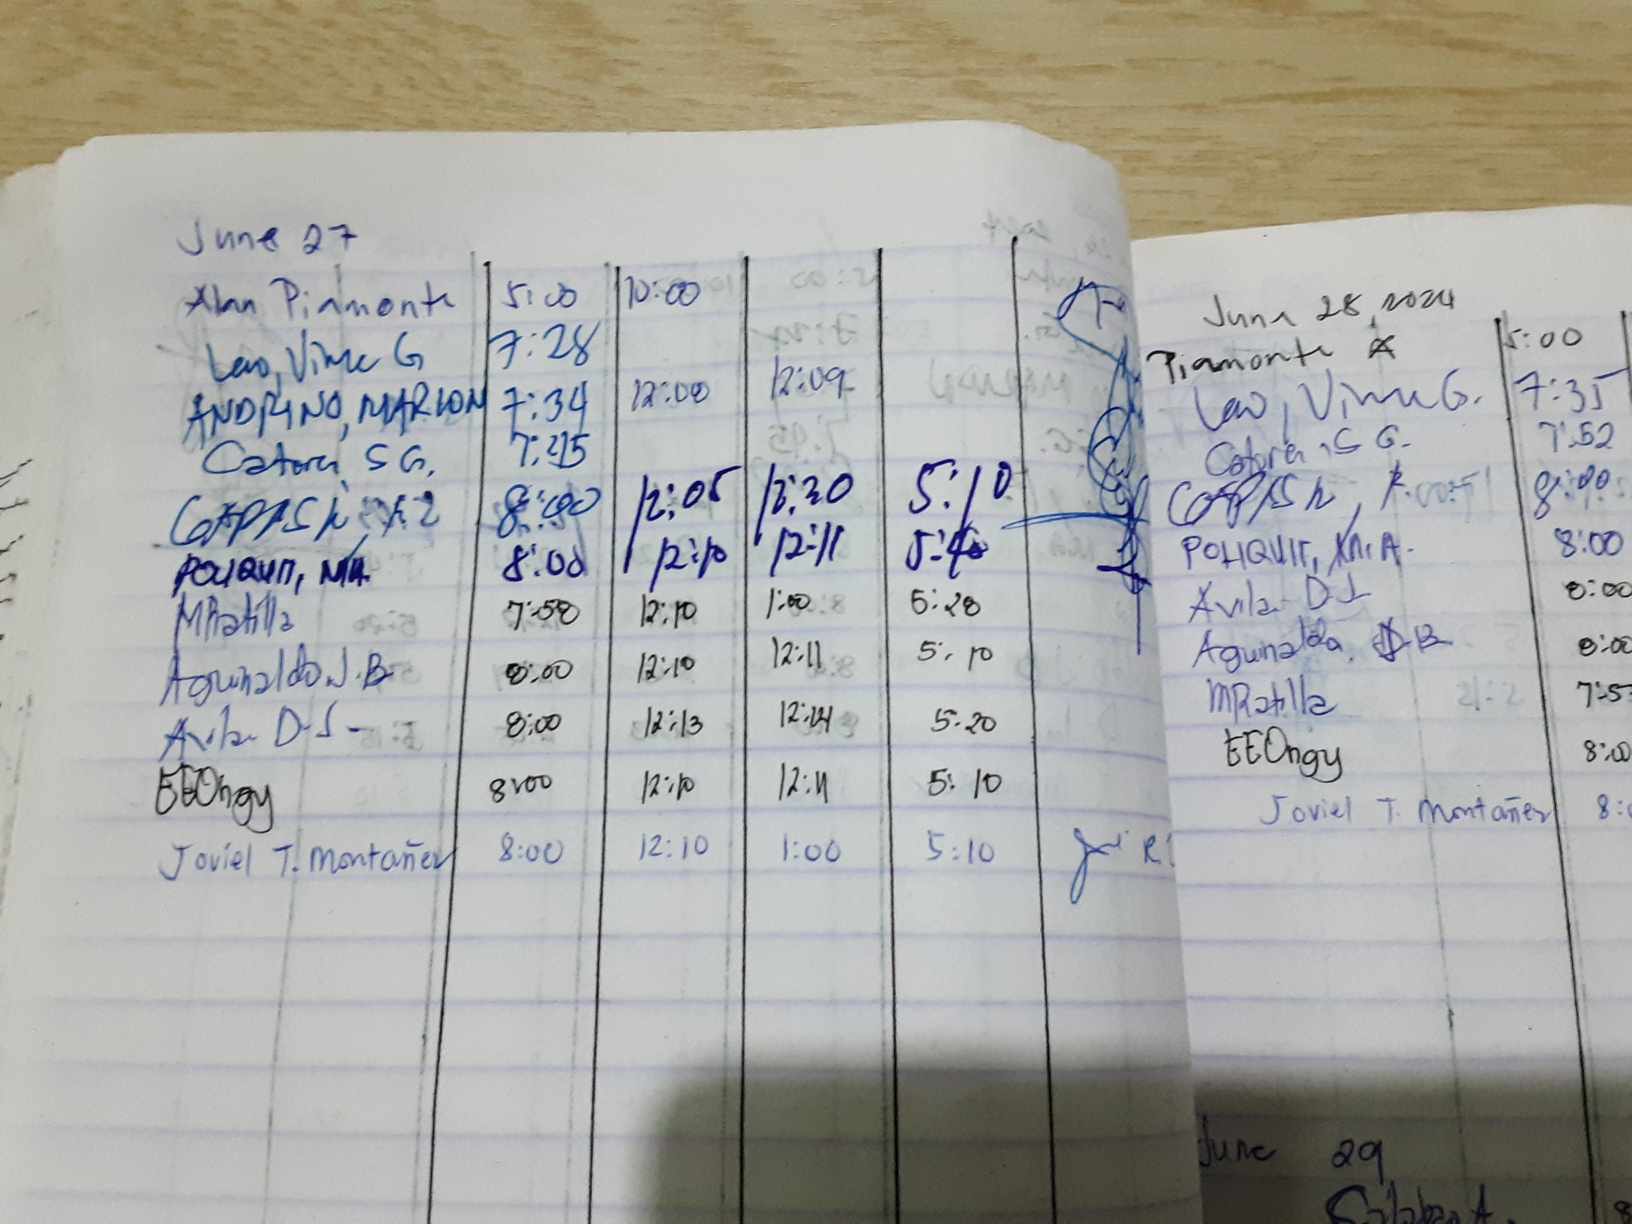 June 27
Alan Piamonte 5:00 10:00
Lao, Vince G 7:28
ANDRINO, MARION 7:34 12:00 12:09
Catora S G. 7:45
8:00 12:05 12:30 5:10
POLIQUIT, M.A. 8:00 12:10 12:11
MRatilla 7:50 12:10 1:00 5:20
Aguinaldo J.B. 8:00 12:10 12:11 5:10
Avila D J 8:00 12:13 12:14 5:20
EEOngy 8:00 12:10 12:11 5:10
Joviel T. Montañez 8:00 12:10 1:00 5:10
June 28, 2024
Piamonte A 5:00
Lao, Vince G. 7:35
Catora S G. 7:52
8:00
POLIQUIT, M.A. 8:00
Avila D J 8:00
Aguinaldo 8:00
MRatilla 7:5
EEOngy 8:0
Joviel T. Montañez 8:
June 29